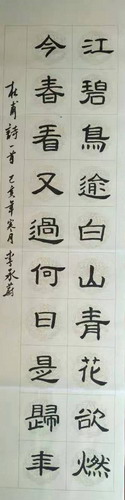 江碧鳥逾白山青花欲燃
今春看又過何日是歸年
杜甫詩一首己亥年寒月李承蔚